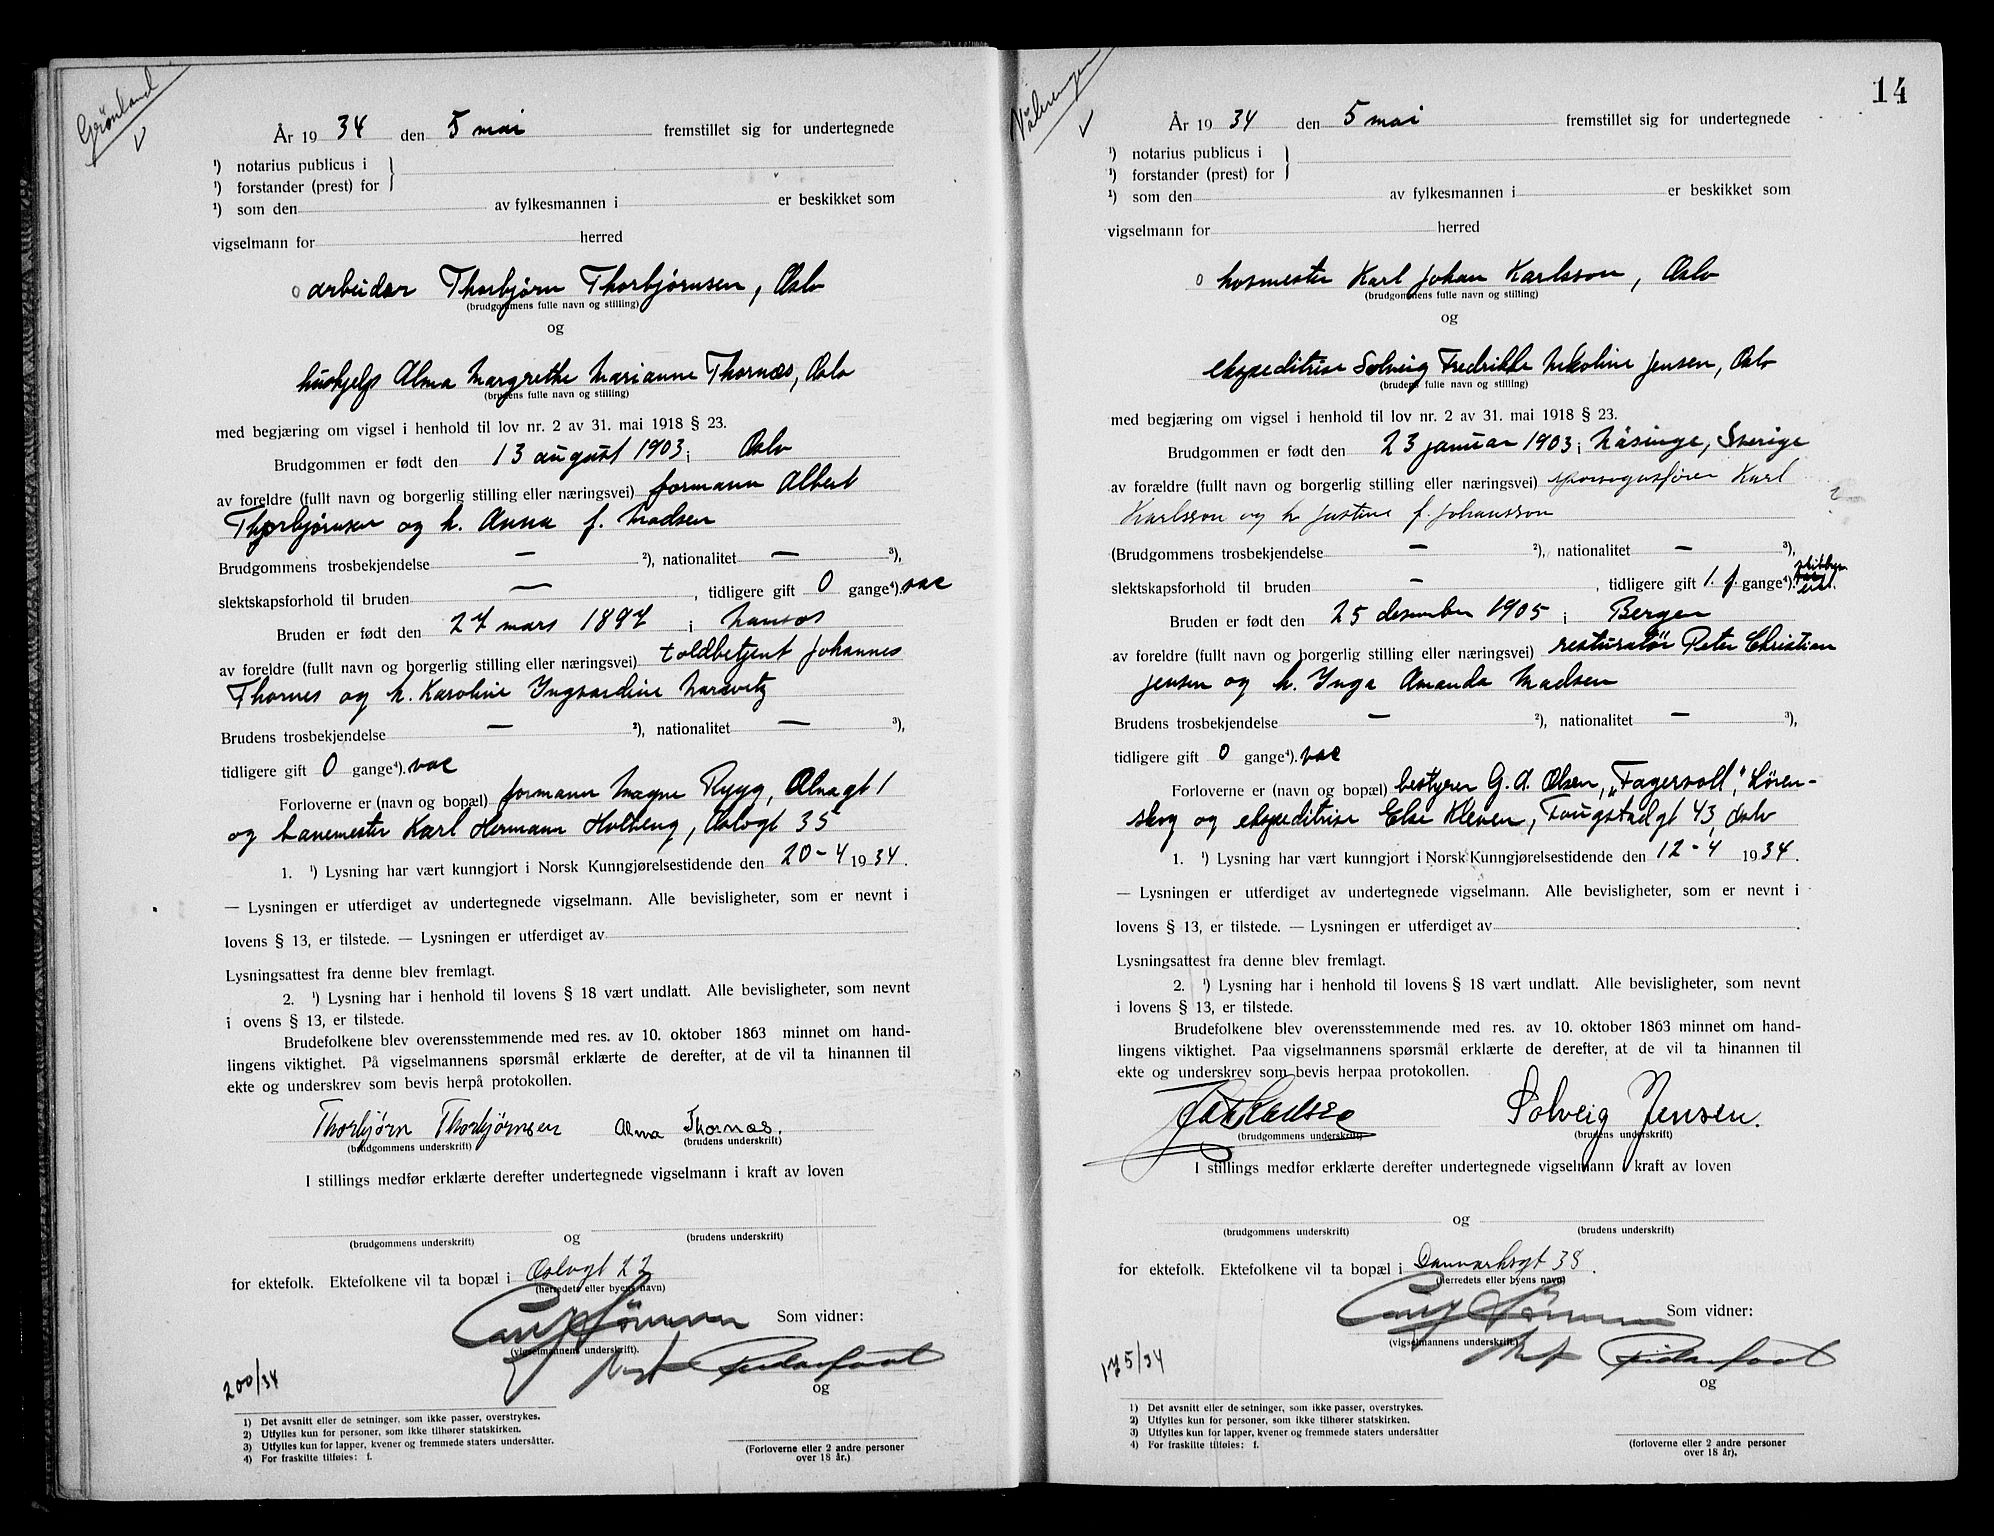 Grönland
✓
År 19 34 den 5 mai fremstillet sig for undertegnede
¹) notarius publicus i
¹) forstander (prest) for
¹) som den av fylkesmannen i er beskikket som
vigselmann for herred
arbeider Thorbjørn Thorbjørnsen, Oslo
(brudgommens fulle navn og stilling)
og
hushjelp Alma Margrethe Marianne Thornæs, Oslo
(brudens fulle navn og stilling)
med begjæring om vigsel i henhold til lov nr. 2 av 31. mai 1918 § 23.
Brudgommen er født den 13 august 1903 i Oslo
av foreldre (fullt navn og borgerlig stilling eller næringsvei) formann Albert
Thorbjørnsen og h. Anna f. Madsen
Brudgommens trosbekjendelse — ²), nationalitet — ³),
slektskapsforhold til bruden — , tidligere gift 0 gange⁴). vac
Bruden er født den 27 mars 1897 i Namsos
av foreldre (fullt navn og borgerlig stilling eller næringsvei) toldbetjent Johannes
Thornes og h. Karoline Ingvardine
Brudens trosbekjendelse — ²), nationalitet — ³),
tidligere gift 0 gange⁴). vac
Forloverne er (navn og bopæl) formann Magne Rygg, Almagt 1
og banemester Karl Hermann Holberg, Oslogt 35
1. ¹) Lysning har vært kunngjort i Norsk Kunngjørelsestidende den 20-4 1934.
— Lysningen er utferdiget av undertegnede vigselmann. Alle bevisligheter, som er nevnt i
lovens § 13, er tilstede. — Lysningen er utferdiget av
Lysningsattest fra denne blev fremlagt.
2. ¹) Lysning har i henhold til lovens § 18 vært undlatt. Alle bevisligheter, som nevnt
i ovens § 13, er tilstede.
Brudefolkene blev overensstemmende med res. av 10. oktober 1863 minnet om hand-
lingens viktighet. På vigselmannens spørsmål erklærte de derefter, at de vil ta hinannen til
ekte og underskrev som bevis herpå protokollen.
Thorbjørn Thorbjørnsen Alma Thornæs.
(brudgommens underskrift) (brudens underskrift)
I stillings medfør erklærte derefter undertegnede vigselmann i kraft av loven
og
(brudgommens underskrift) (brudens underskrift)
for ektefolk. Ektefolkene vil ta bopæl i Oslogt 22
(herredets eller byens navn)
Som vidner:
(vigselmannens underskrift).
og
200/34
1) Det avsnitt eller de setninger, som ikke passer, overstrykes.
2) Utfylles kun for personer, som ikke tilhører statskirken.
3) Utfylles kun for lapper, kvener og fremmede staters undersåtter.
4) For fraskilte tilføles: f.
(Forloverne eller 2 andre personer
over 18 år.)
14
Vålerengen
✓
År 19 34 den 5 mai fremstillet sig for undertegnede
¹) notarius publicus i
¹) forstander (prest) for
¹) som den av fylkesmannen i er beskikket som
vigselmann for herred
hovmester Karl Johan Karlsson, Oslo
(brudgommens fulle navn og stilling)
og
ekspeditrise Solveig Fredrikke Nikoline Jensen, Oslo
(brudens fulle navn og stilling)
med begjæring om vigsel i henhold til lov nr. 2 av 31. mai 1918 § 23.
Brudgommen er født den 23 januar 1903 i Näsinge, Sverige
av forældre (fullt navn og borgerlig stilling eller næringsvei) sporvognsfører Karl
Karlsson og h Justine f. Johansson
(Brudgommens trosbekjendelse — ²), nationalitet — ³),
slektskapsforhold til bruden — , tidligere gift 1. f. gange⁴).
Bruden er født den 25 desember 1905 i Bergen
av foreldre (fullt navn og borgerlig stilling eller næringsvei) resturatør Peter Christian
Jensen og h. Inga Amanda Madsen
Brudens trosbekjendelse — ²), nationalitet — ³),
tidligere gift 0 gange⁴). vac
Forloverne er (navn og bopæl) bestyrer G. A. Olsen, „Fagervoll", Løren-
skog og ekspeditrise Else Kleven, Fougstadgt 43, Oslo
1. ¹) Lysning har vært kunngjort i Norsk Kunngjørelsestidende den 12-4 1934.
— Lysningen er utferdiget av undertegnede vigselmann. Alle bevisligheter, som er nevnt i
lovens § 13, er tilstede. — Lysningen er utferdiget av
Lysningsattest fra denne blev fremlagt.
2. ¹) Lysning har i henhold til lovens § 18 vært undlatt. Alle bevisligheter, som nevnt
i lovens § 13, er tilstede.
Brudefolkene blev overensstemmende med res. av 10. oktober 1863 minnet om hand-
lingens viktighet. Paa vigselmannens spørsmål erklærte de derefter, at de vil ta hinannen til
ekte og underskrev som bevis herpaa protokollen.
Solveig Jensen.
(brudgommens underskrift) (brudens underskrift)
I stillings medfør erklærte derefter undertegnede vigselmann i kraft av loven
og
(brudgommens underskrift) (brudens underskrift)
for ektefolk. Ektefolkene vil ta bopæl i Danmarksgt 38.
(herredets eller byens navn)
Som vidner:
(vigselmannens underskrift)
og
175/34
1) Det avsnitt eller de setninger, som ikke passer, overstrykes.
2) Utfylles kun for personer, som ikke tilhører statskirken.
3) Utfylles kun for lapper, kvener og fremmede staters undersåtter
4) For fraskilte tilføles: f.
(forloverne eller 2 andre personer
over 18 år).